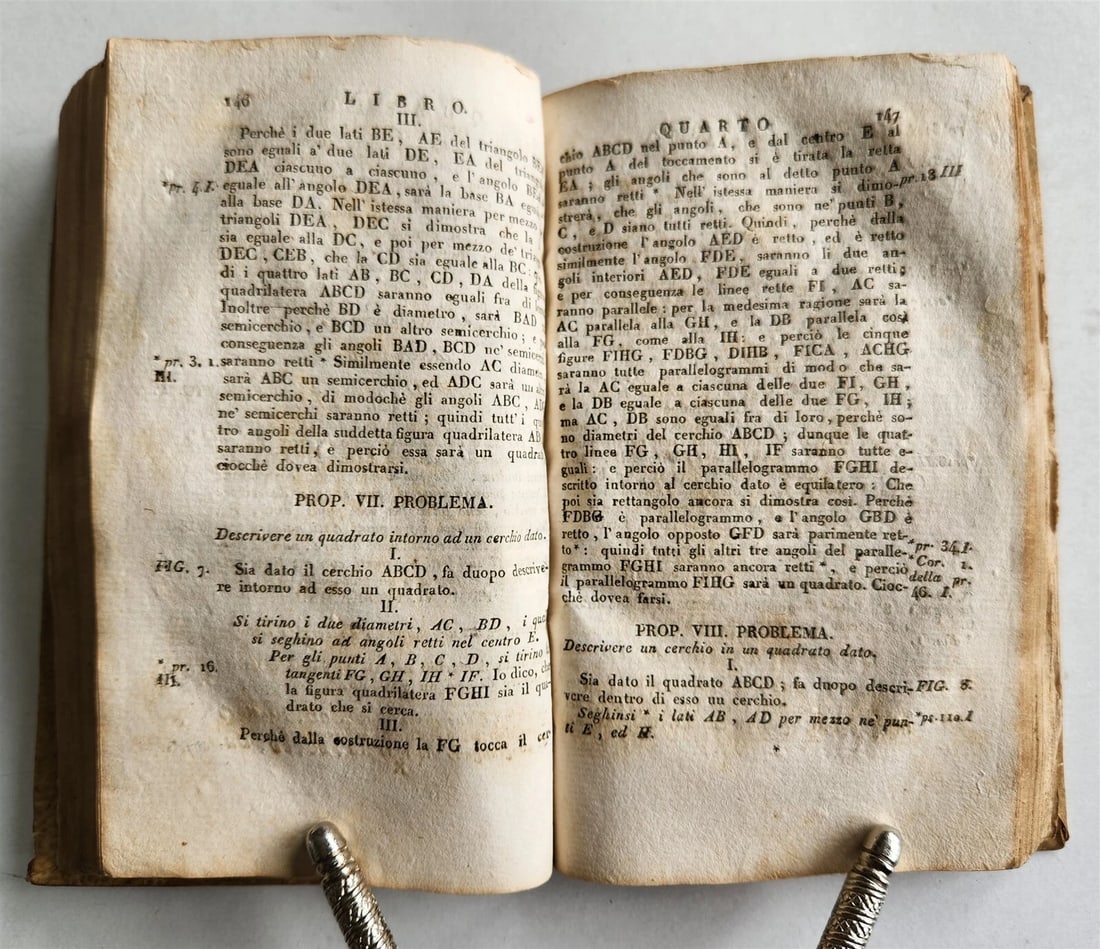 146
LIBRO.
III.
Perchè i due lati BE, AE del triangolo
sono eguali a' due lati DE, EA del
DEA ciascuno a ciascuno, e l'angolo
*pr. 4. I. eguale all'angolo DEA, sarà la base BA
alla base DA. Nell'istessa maniera per mezzo
triangoli DEA, DEC si dimostra che la
sia eguale alla DC, e poi per mezzo de'
DEC, CEB, che la CD sia eguale alla BC:
di i quattro lati AB, BC, CD, DA della
quadrilatera ABCD saranno eguali fra di
Inoltre perchè BD è diametro, sarà BAD
semicerchio, e BCD un altro semicerchio; e
conseguenza gli angoli BAD, BCD ne'
* pr. 3. 1. saranno retti * Similmente essendo AC
III. sarà ABC un semicerchio, ed ADC sarà un
semicerchio, di modochè gli angoli ABC,
ne' semicerchi saranno retti; quindi tutt' i
tro angoli della suddetta figura quadrilatera
saranno retti, e perciò essa sarà un
ciocchè dovea dimostrarsi.
PROP. VII. PROBLEMA.
Descrivere un quadrato intorno ad un cerchio dato.
I.
FIG. 7. Sia dato il cerchio ABCD, fa duopo descrive-
re intorno ad esso un quadrato.
II.
Si tirino i due diametri, AC, BD, i
si seghino ad angoli retti nel centro E.
Per gli punti A, B, C, D, si tirino
* pr. 16. tangenti FG, GH, IH * IF. Io dico,
III. la figura quadrilatera FGHI sia il qua-
drato che si cerca.
III.
Perchè dalla costruzione la FG tocca il cer-
147
QUARTO
chio ABCD nel punto A, e dal centro E al
punto A del toccamento si è tirata la retta
EA; gli angoli che sono al detto punto A
saranno retti * Nell'istessa maniera si dimo- *pr. 18 III
strerà, che gli angoli, che sono ne' punti B,
C, e D siano tutti retti. Quindi, perchè dalla
costruzione l'angolo AED è retto, ed è retto
similmente l'angolo FDE, saranno li due an-
goli interiori AED, FDE eguali a due retti;
e per conseguenza le linee rette FI, AC sa-
ranno parallele: per la medesima ragione sarà la
AC parallela alla GH, e la DB parallela così
alla FG, come alla IH: e perciò le cinque
figure FIHG, FDBG, DIHB, FICA, ACHG
saranno tutte parallelogrammi di modo che sa-
rà la AC eguale a ciascuna delle due FI, GH,
e la DB eguale a ciascuna delle due FG, IH;
ma AC, DB sono eguali fra di loro, perchè so-
no diametri del cerchio ABCD; dunque le quat-
tro linee FG, GH, HI, IF saranno tutte e-
guali: e perciò il parallelogrammo FGHI de-
scritto intorno al cerchio dato è equilatero: Che
poi sia rettangolo ancora si dimostra così. Perchè
FDBG è parallelogrammo, e l'angolo GBD è
retto, l'angolo opposto GFD sarà parimente ret-
to*: quindi tutti gli altri tre angoli del paralle- *pr. 34. I.
grammo FGHI saranno ancora retti *, e perciò *Cor. 1.
il parallelogrammo FIHG sarà un quadrato. Cioc- della pr.
chè dovea farsi. 46. I.
PROP. VIII. PROBLEMA.
Descrivere un cerchio in un quadrato dato.
I.
Sia dato il quadrato ABCD; fa duopo descri- FIG. 8.
vere dentro di esso un cerchio.
Seghinsi * i lati AB, AD per mezzo ne' pun- *pr. 110. I
ti E, ed H.
*